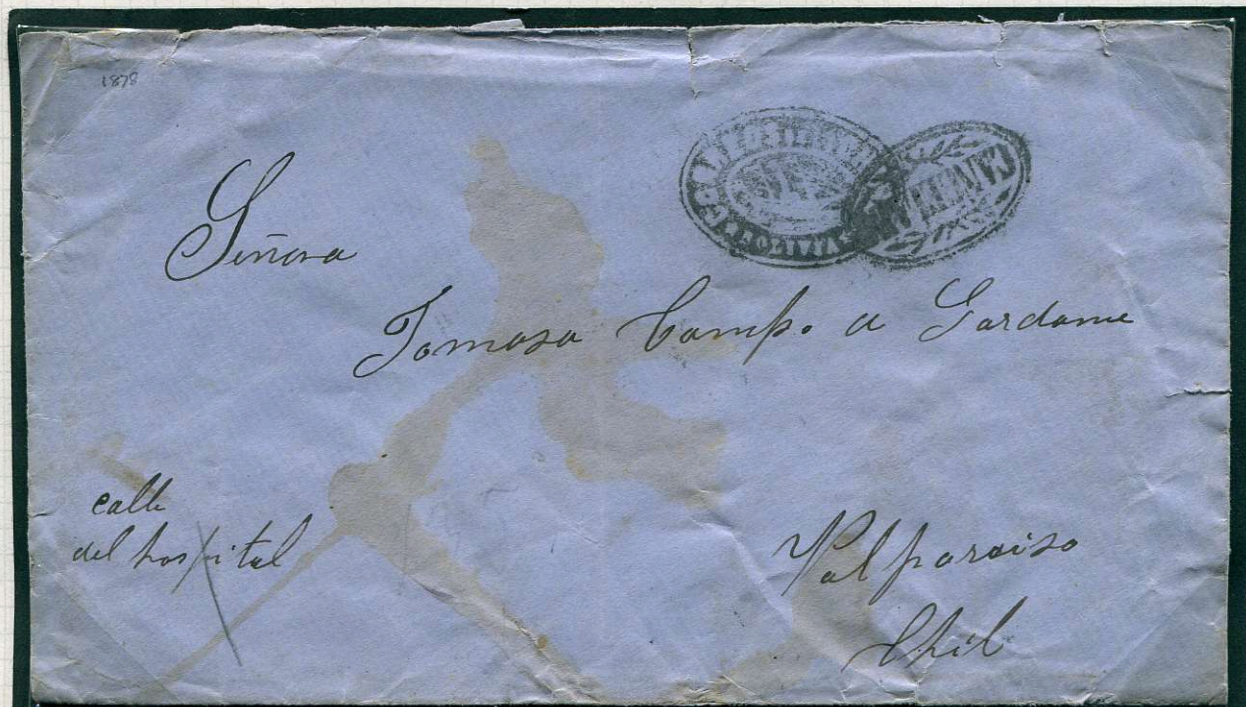 1878
BOLIVIA
Señora
Tomasa Campo. a Gardame
calle
del hospital
Valparaiso
Chil